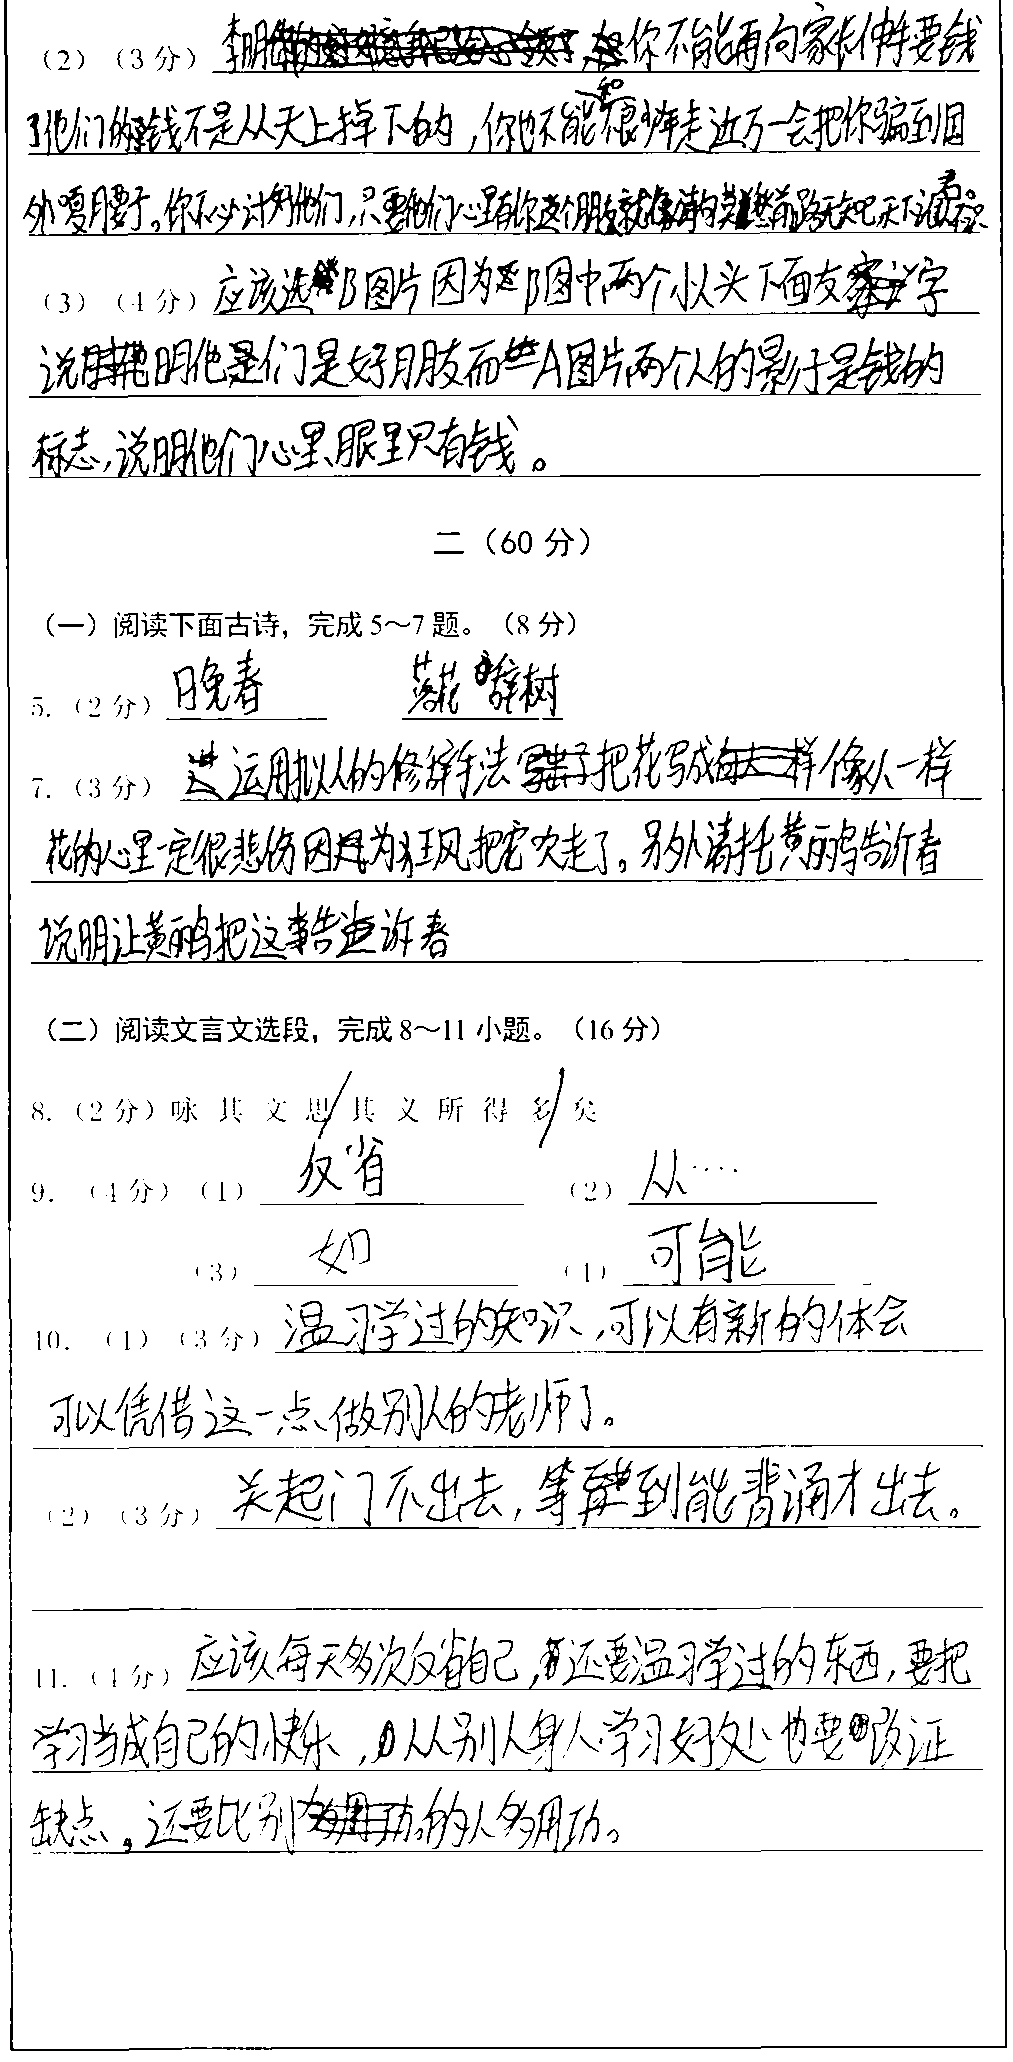 （2）（3分）李明你不能再向家长伸手要钱
了他们的钱不是从天上掉下的，你也不能和很少年走近万一会把你骗到国
外嘎腰子。你不少计划他们，只要他们心里有你这个朋友就莫愁前路无知己天下谁人不识君。
（3）（4分）应该选B图片因为B图中两个小人头下面友字
说明他们是好朋友而A图片两个人的影子是钱的
标志，说明他们心里、眼里只有钱。
二（60分）
（一）阅读下面古诗，完成5～7题。（8分）
5.（2分）晚春 落花辞树
7.（3分）运用拟人的修辞手法把花写成像人一样
花的心里一定很悲伤因为狂风把它吹走了。另外请托黄鹂鸟告诉春
说明让黄鹂鸟把这事告诉春
（二）阅读文言文选段，完成8～11小题。（16分）
8.（2分）咏其文思/其义所得多/矣
9.（4分）（1）反省 （2）从····
（3）如 （4）可能
10.（1）（3分）温习学过的知识，可以有新的体会
可以凭借这一点、做别人的老师了。
（2）（3分）关起门不出去，等到能背诵才出去。
11.（4分）应该每天多次反省自己，还要温习学过的东西，要把
学习当成自己的快乐，从别人身人学习好处也要改证
缺点。还要比别的人多用功。